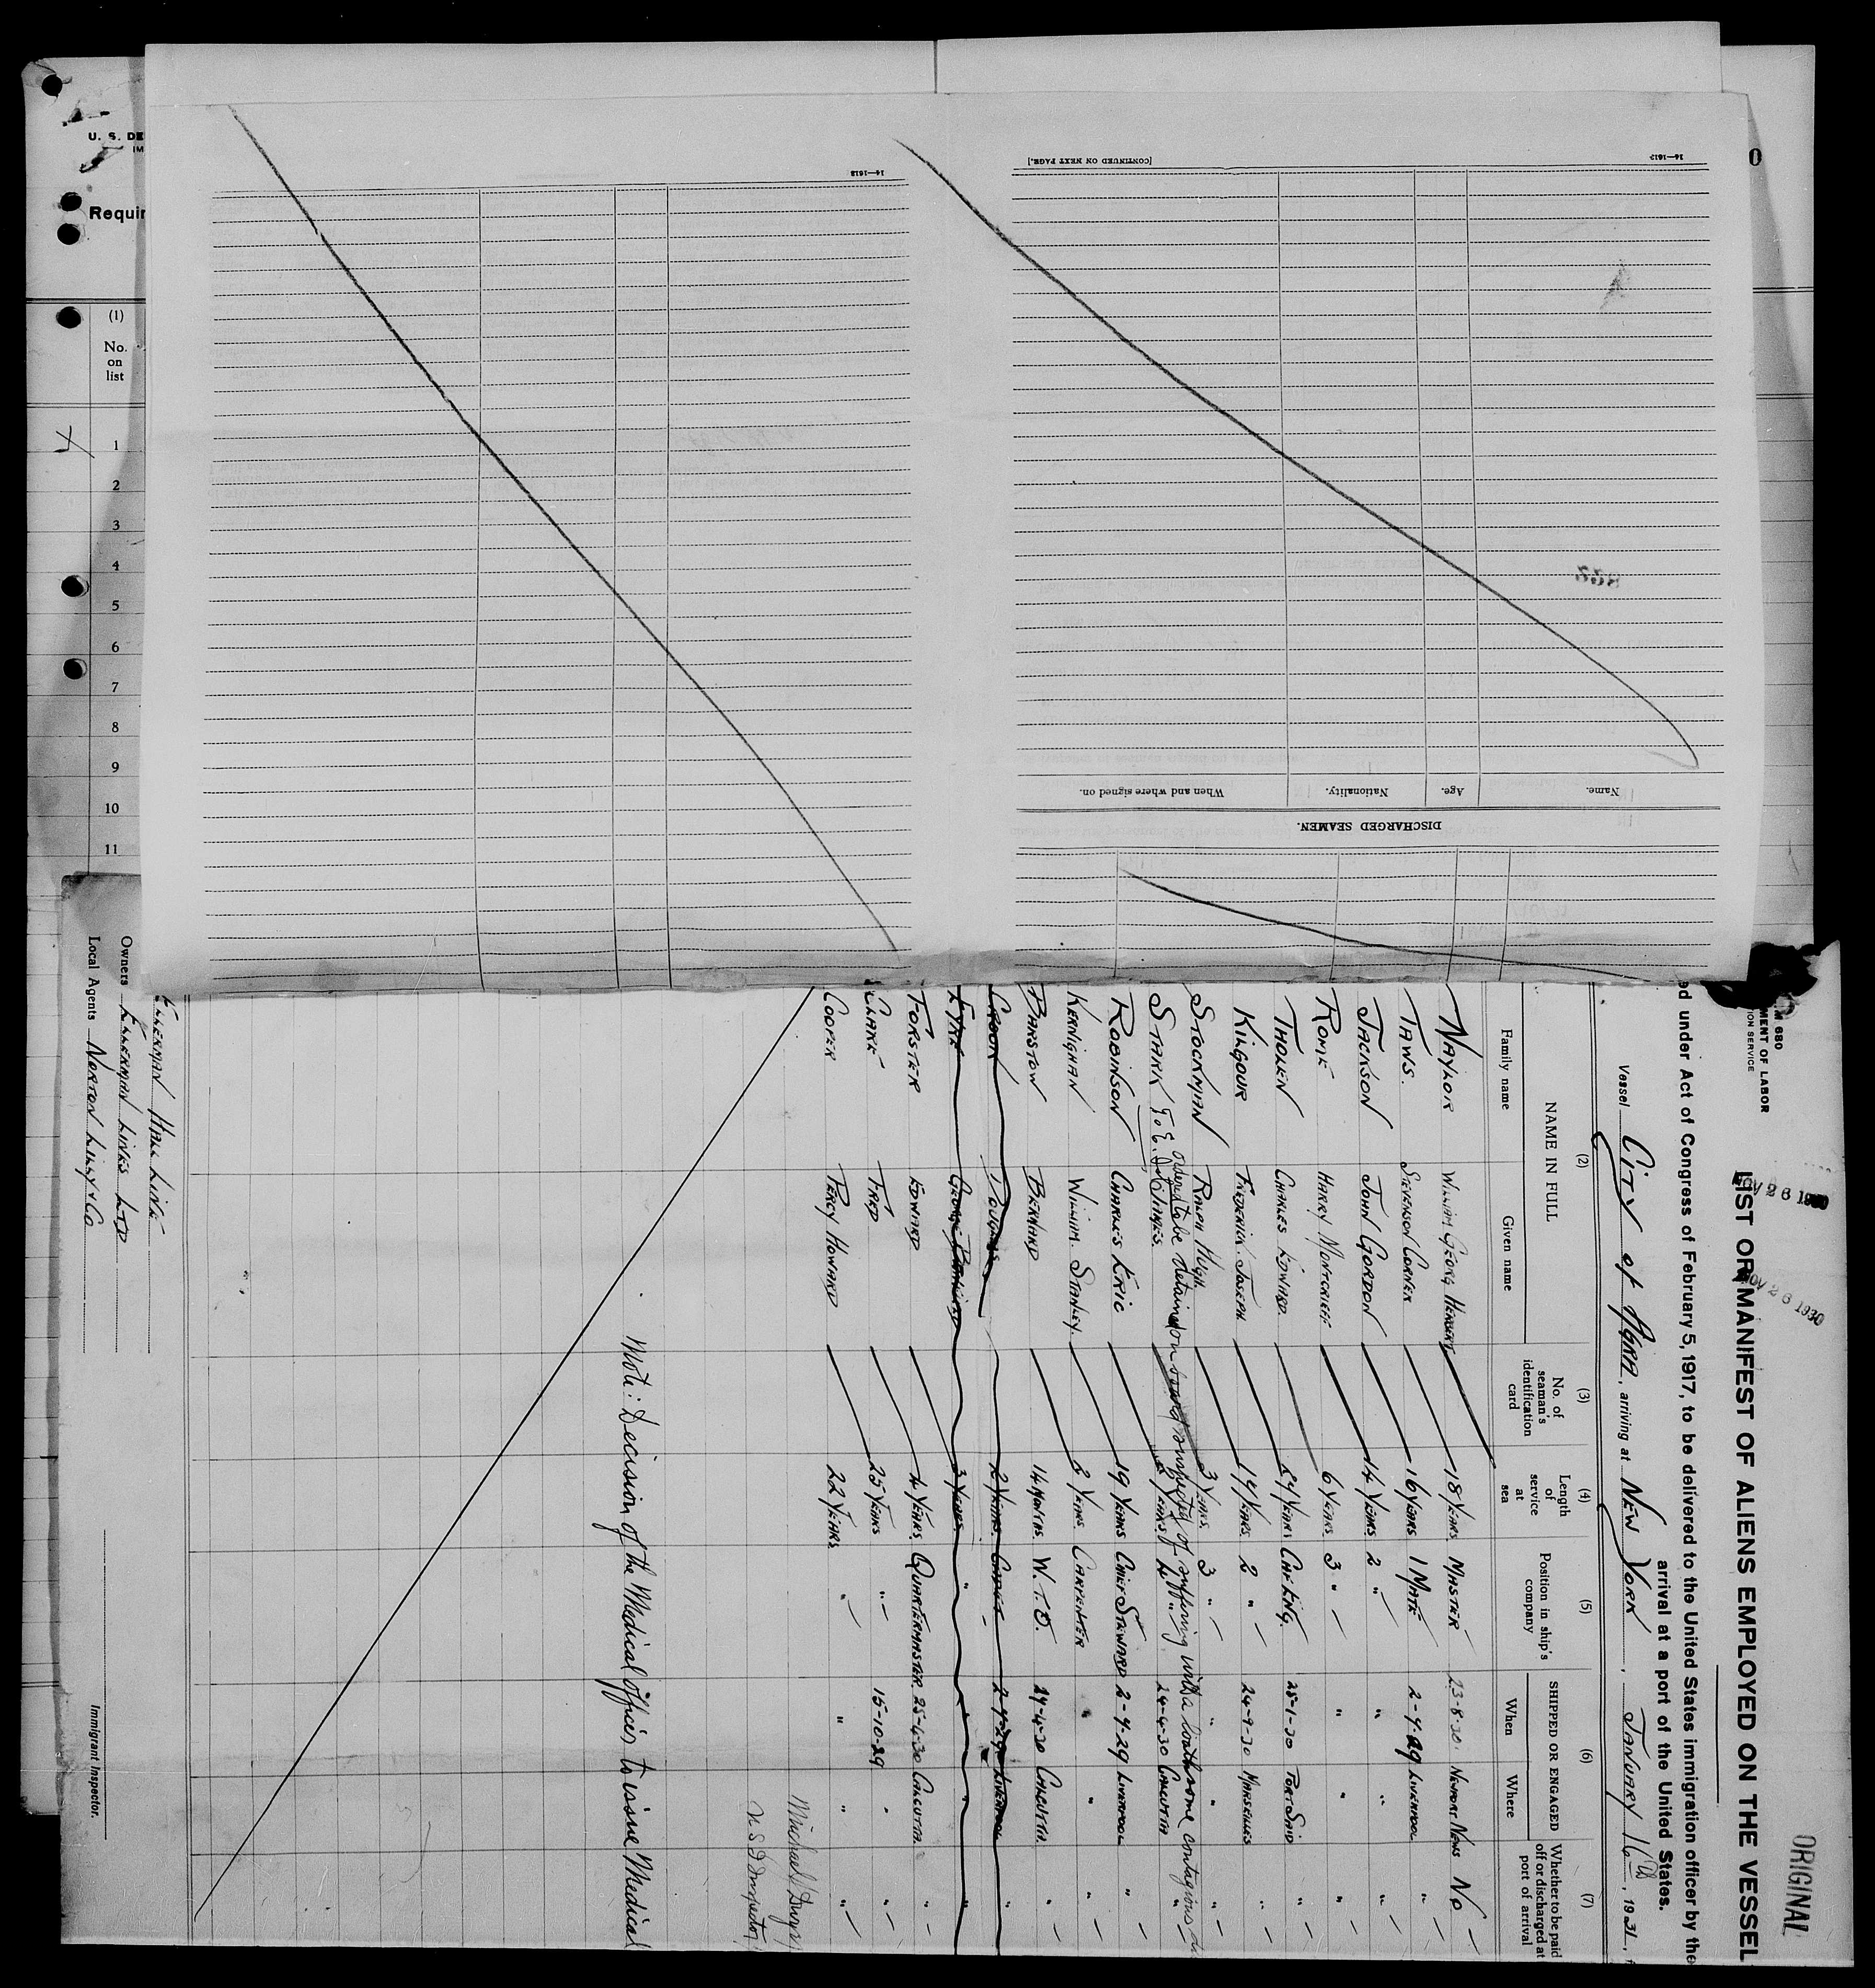 U. S. DE
IM
Requir
(1)
No.
on
list
1
2
3
4
5
6
7
8
9
10
11
0
16—1618
[CONTINUED ON NEXT PAGE.]
16—1617
DISCHARGED SEAMEN.
Name.
Age.
Nationality.
When and where signed on.
ORIGINAL
M 680
MENT OF LABOR
ION SERVICE
LIST OR MANIFEST OF ALIENS EMPLOYED ON THE VESSEL
NOV 26 1930
NOV 26 1930
ed under Act of Congress of February 5, 1917, to be delivered to the United States immigration officer by the
arrival at a port of the United States.
Vessel City of Agra, arriving at New York, January 16th, 1931,
(2) (3) (4) (5) (6) (7)
NAME IN FULL
Family name Given name
No. of seaman's identification card
Length of service at sea
Position in ship's company
SHIPPED OR ENGAGED
When Where
Whether to be paid off or discharged at port of arrival
Naylor William George Herbert 18 Years Master 23-8-30 Newport News No
Taws. Stevenson Corner 16 Years 1 Mate 2-4-29 Liverpool "
Jackson John Gordon 14 Years 2 " " " "
Rome Harry Montorieff 6 Years 3 " " " "
Tholen Charles Edward. 24 Years Chf Eng. 25-1-30 Port Said "
Kilgour Frederick Joseph 14 Years 2 " 24-9-30 Marseilles "
Stockman Ralph Hugh 3 Years. 3 " " " "
ordered to be detained on board suspected of suffering with a loathsome contagious
Stark James. Years 4 " 24-4-30 Calcutta "
Robinson Charles Eric 19 Years Chief Steward 2-4-29 Liverpool "
Kernighan William Stanley. 2 Years. Carpenter " " "
Barstow Bernard 14 Months. W. T. O. 24-4-30 Calcutta "
Crook Douglas 2 Years Cadet 2-4-29 Liverpool "
Eyre George Bernard 3 Years " " " "
Forster Edward 4 Years Quartermaster 25-4-30 Calcutta "
Clark Fred 25 Years " 15-10-29 " "
Cooper Percy Howard 22 Years " " " "
Michael
U S I Inspector
Note: Decision of the Medical Officer to issue Medical
Ellerman Hall Line
Owners Ellerman Lines Ltd
Local Agents Norton Lilly & Co
Immigrant Inspector.